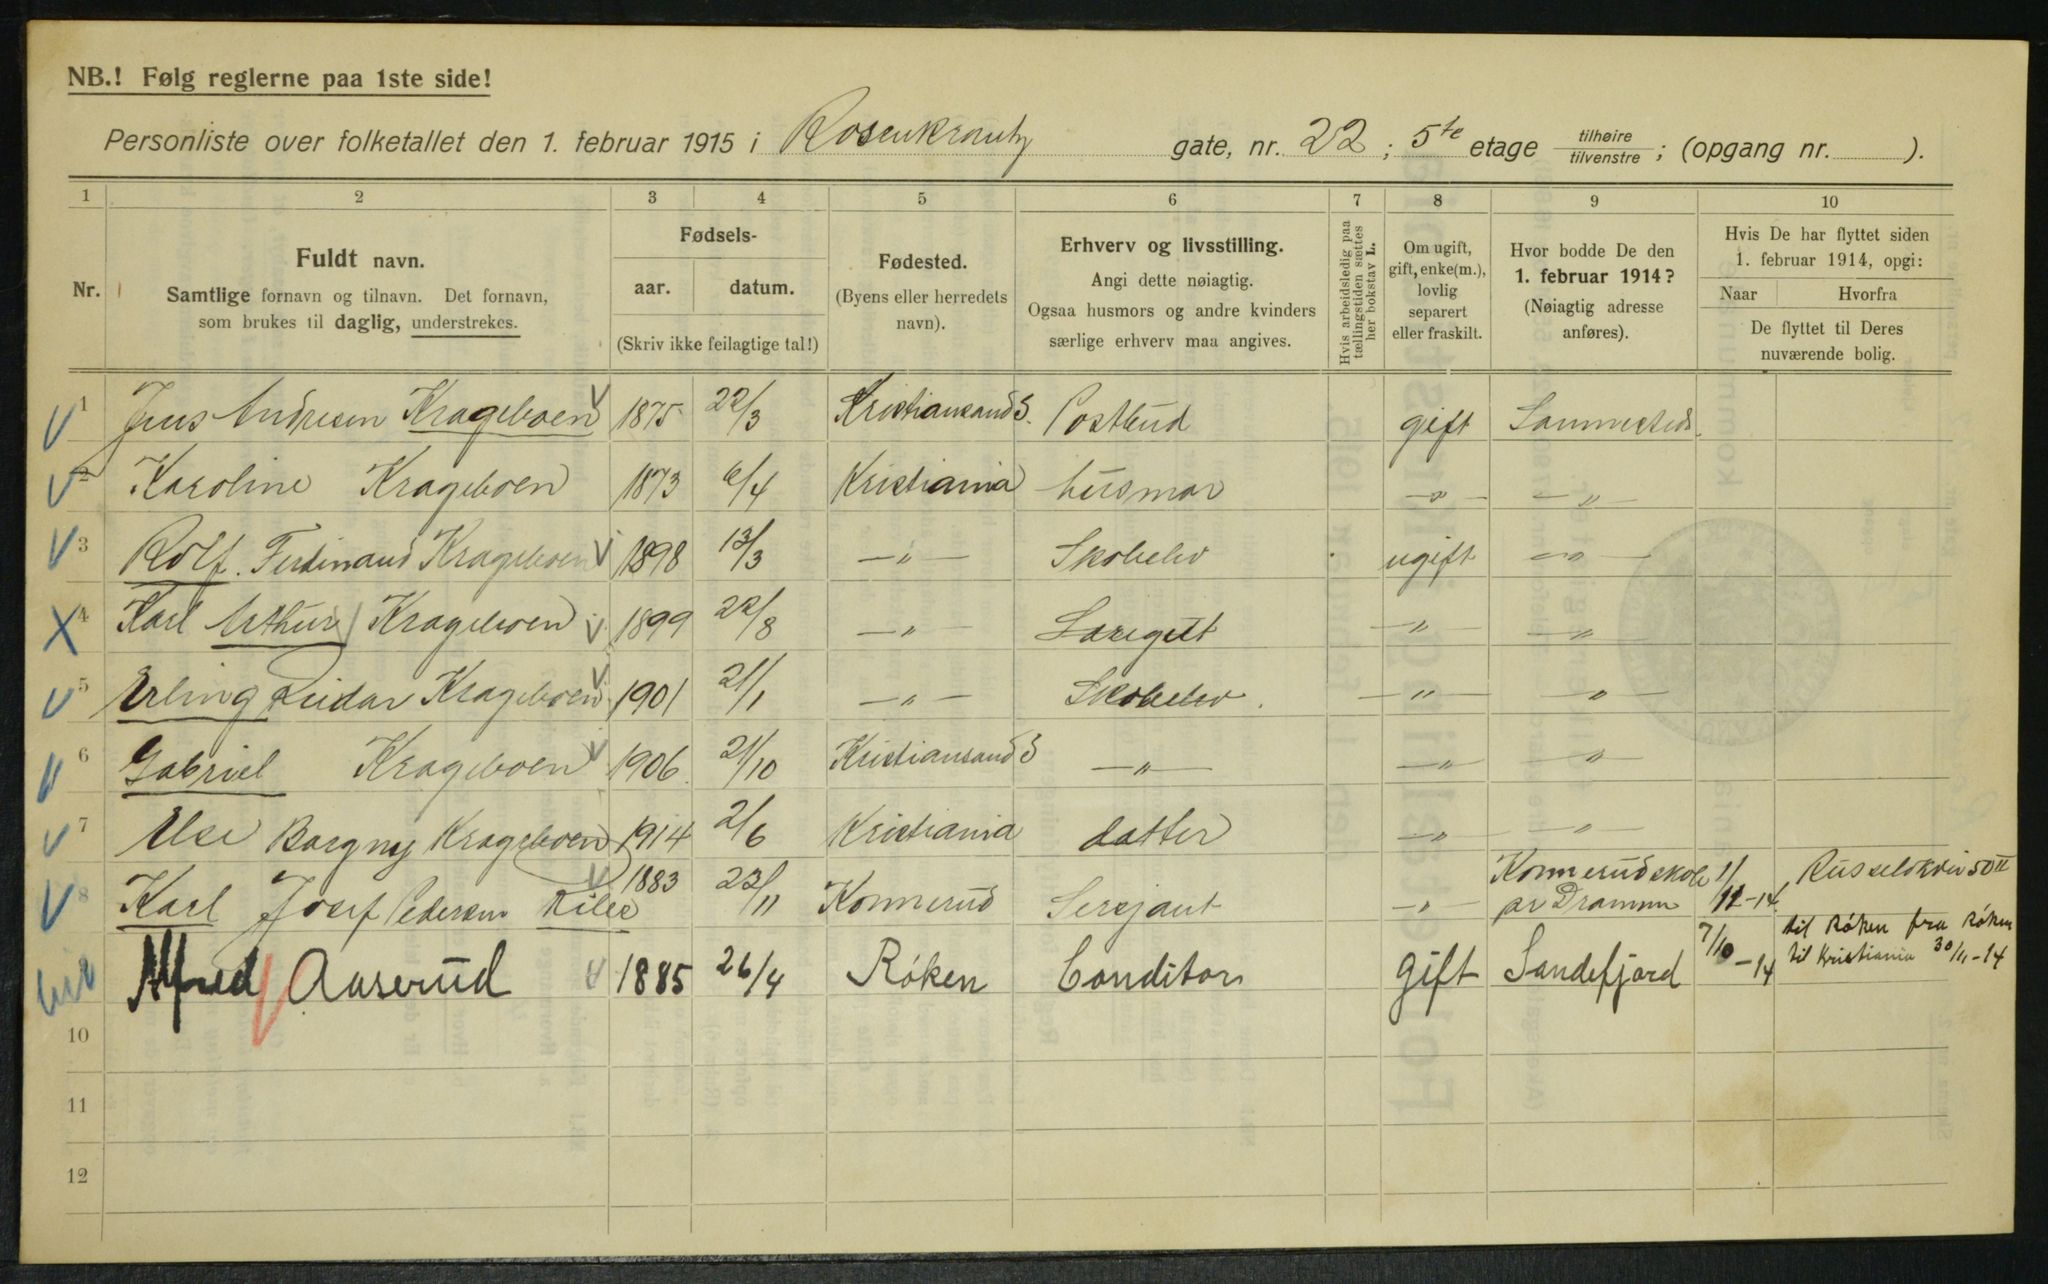 NB.! Følg reglerne paa 1ste side!
Personliste over folketallet den 1. februar 1915 i Rosenkrantz gate, nr. 22 ; 5te etage tilhøire / tilvenstre ; (opgang nr. ).
1 2 3 4 5 6 7 8 9 10
Nr.
Fuldt navn.
Samtlige fornavn og tilnavn. Det fornavn,
som brukes til daglig, understrekes.
Fødsels-
aar. datum.
(Skriv ikke feilagtige tal!)
Fødested.
(Byens eller herredets
navn).
Erhverv og livsstilling.
Angi dette nøiagtig.
Ogsaa husmors og andre kvinders
særlige erhverv maa angives.
Hvis arbeidsledig paa
tællingstiden sættes
her bokstav L.
Om ugift,
gift, enke(m.),
lovlig
separert
eller fraskilt.
Hvor bodde De den
1. februar 1914?
(Nøiagtig adresse
anføres).
Hvis De har flyttet siden
1. februar 1914, opgi:
Naar Hvorfra
De flyttet til Deres
nuværende bolig.
1 Jens Andresen Krageboen 1875 22/3 Kristiansand S. Postbud gift Sammesteds.
2 Karoline Krageboen 1873 6/4 Kristiania husmor —„— —„—
3 Rolf. Ferdinand Krageboen 1898 13/3 —„— Skoelev ugift —„—
4 Karl Arthur Krageboen 1899 22/8 —„— —„— —„—
5 Erling Reidar Krageboen 1901 21/1 —„— Skoleelev —„— —„—
6 Gabriel Krageboen 1906 21/10 Kristiansand S —„— —„— —„—
7 Else Borgny Krageboen 1914 2/6 Kristiania datter —„— —„—
8 Karl Josef Pedersen 1883 23/11 Konnerud Sersjant —„— Konnerudskole pr Drammen 1/11-14. 50 II
Alfred Aaserud 1885 26/4 Røken Conditor gift Sandefjord 7/10-14 til Røken fra Røken
til Kristiania 30/11-14
10
11
12